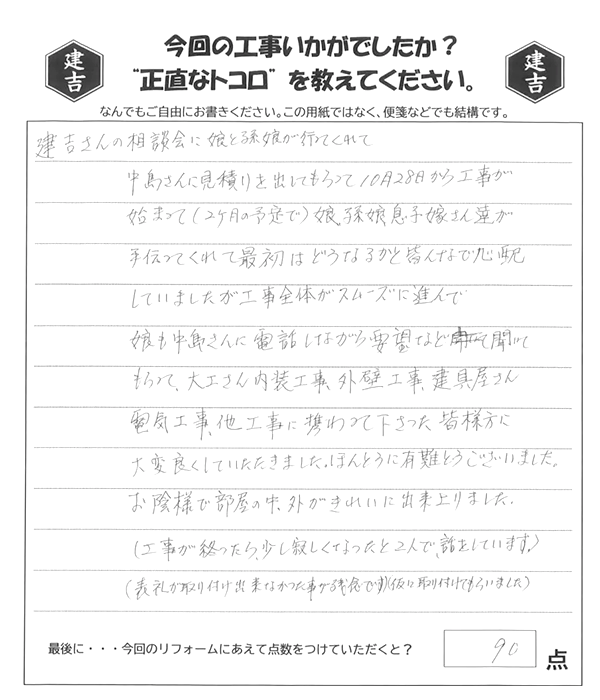 建吉
今回の工事いかがでしたか？
建吉
“正直なトコロ”を教えてください。
なんでもご自由にお書きください。この用紙ではなく、便箋などでも結構です。
建吉さんの相談会に娘と孫娘が行ってくれて
中島さんに見積りを出してもらって10月28日から工事が
始まって(2ヶ月の予定で)娘、孫娘、息子嫁さん達が
手伝ってくれて最初はどうなるかと皆んなで心配
していましたが工事全体がスムーズに進んで
娘も中島さんに電話しながら要望など聞いて
もらって、大工さん内装工事、外壁工事、建具屋さん
電気工事、他工事に携わって下さった皆様方に
大変良くしていただきました。ほんとうに有難とうございました。
お陰様で部屋の中、外がきれいに出来上りました。
(工事が終ったら、少し寂しくなったと2人で、話をしています。)
(表札が取り付け出来なかった事が残念です)(仮に取り付けてもらいました)
最後に・・・今回のリフォームにあえて点数をつけていただくと？
90点